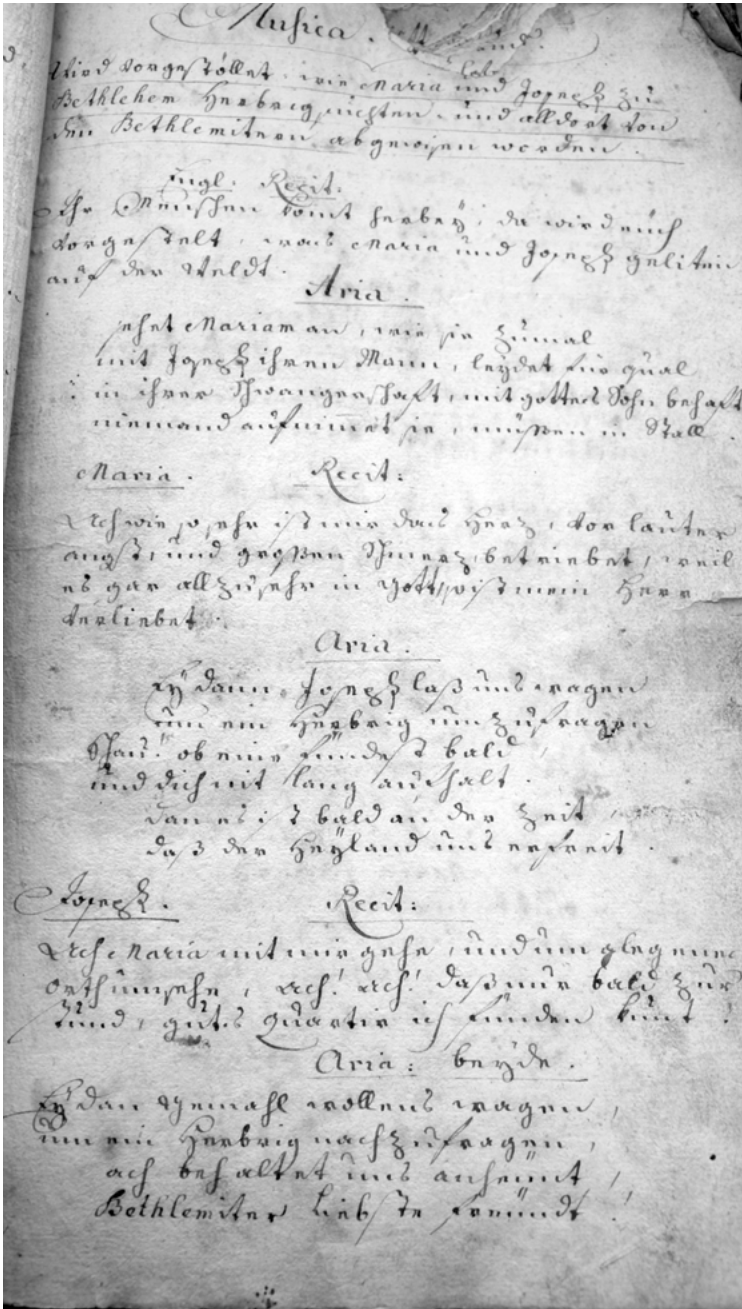 Musica.
Wird vorgestöllet, wie Maria und Joseph zu
Bethlehem Herbrig suchten, und alldort von
den Bethlemitern abgewisen worden.
Engl. Recit:
Ihr Menschen komt herbey, da wird euch
vorgestelt, was Maria und Joseph geliten
auf der Weldt.
Aria.
sehet Mariam an, wie sie zumal
mit Joseph ihren Mann, leydet für qual
in ihrer Schwangerschaft, mit gottes Sohn behaft
niemand aufnimmet sie, müssen in Stall.
Maria. Recit:
Ach wie so sehr ist mir das Herz, vor lauter
angst, und großen Schmerz, betriebet, weil
es gar allzusehr in gott, ist mein Herr
verliebet.
Aria.
Ey dann Joseph laß uns wagen
um ein Herbrig umzufragen
Schau! ob eine fündest bald,
und dich nit lang aufhalt.
dan es ist bald an der Zeit
daß der Heyland uns erfreit.
Joseph. Recit:
Ach Maria mit mir gehe, und um glegenes
orth umsehe, ach! ach! daß nur bald zur
stund, guts quartir ich fünden kunt!
Aria: beyde.
Ey dan gemahl wollens wagen,
um ein Herbrig nachzufragen,
ach behaltet uns anheunt,
Bethlemiter liebste freundt!